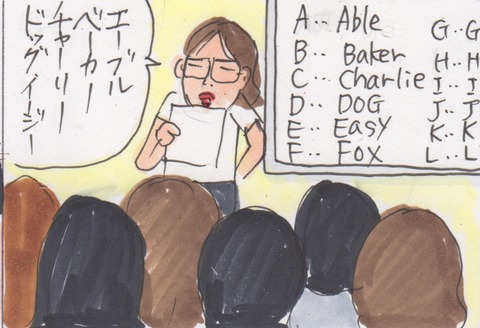 エーブル
ベーカー
チャーリー
ドッグイージー
A‥ Able
B‥ Baker
C‥ Charlie
D‥ DOG
E‥ Easy
F‥ Fox
G‥G
H‥H
I‥I
J‥
K‥K
L‥L